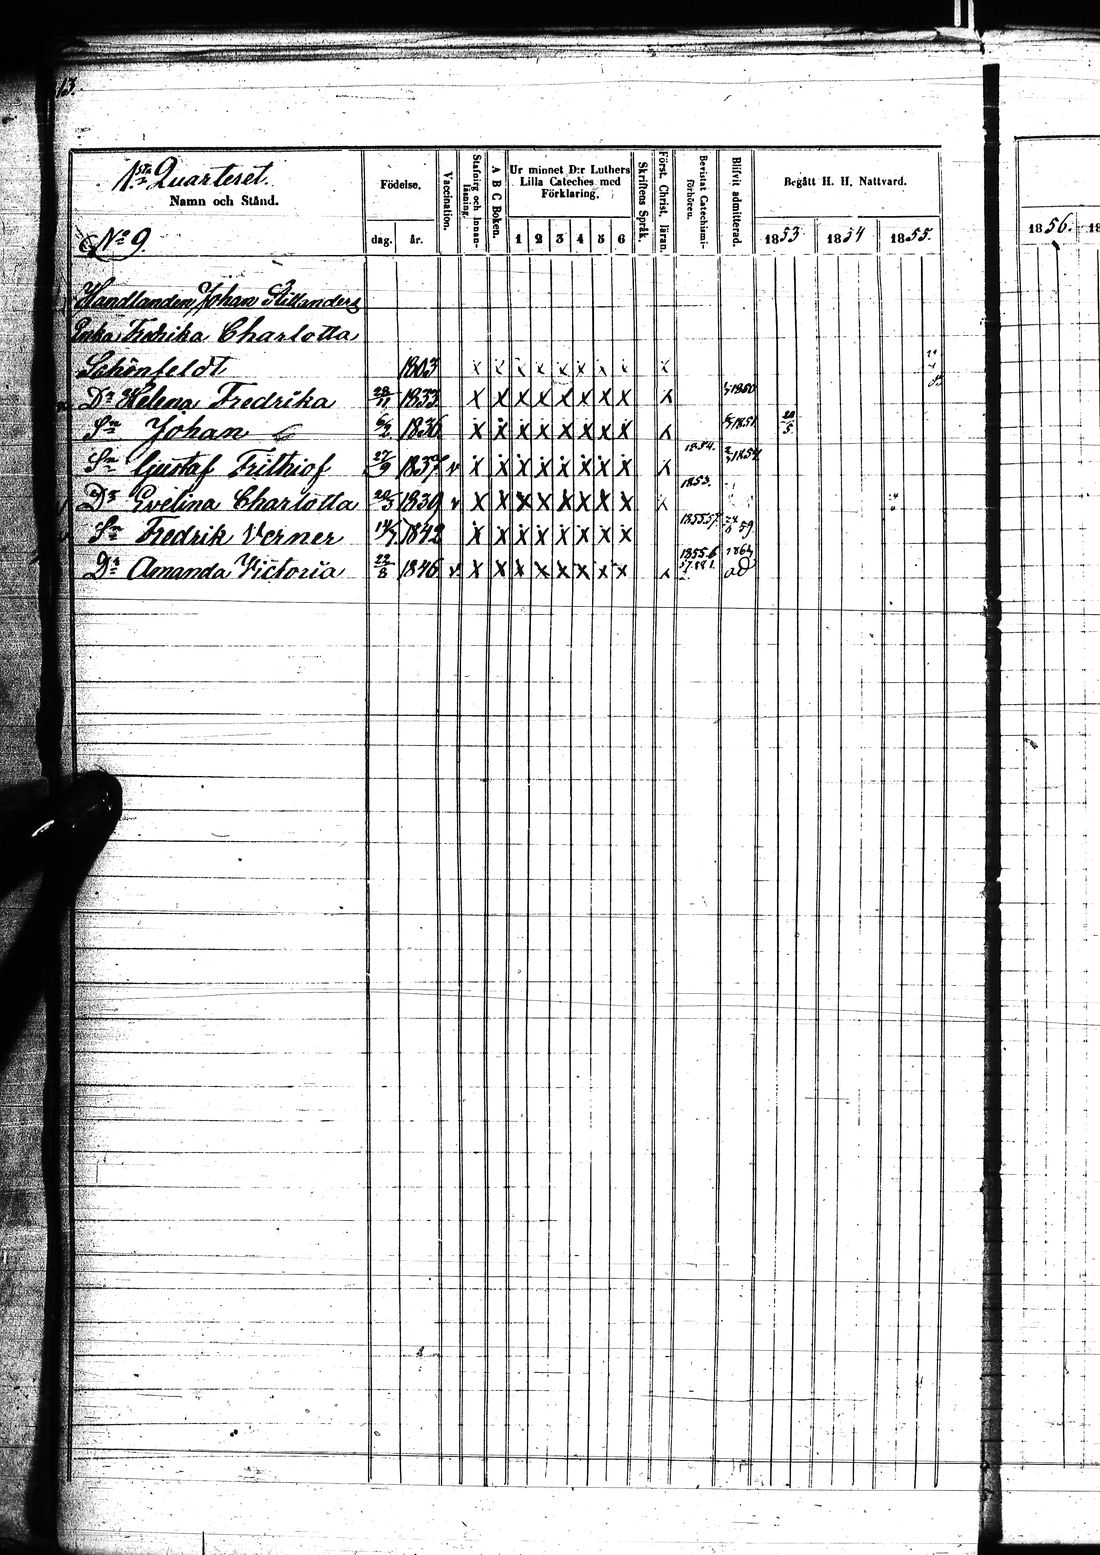 13.
1sta Quarteret.
Namn och Stånd.
No 9.
Födelse.
dag. år.
Vaccination.
Stafning och Innan-läsning.
A B C Boken.
Ur minnet D:r Luthers Lilla Cateches med Förklaring.
1 2 3 4 5 6
Skriftens Språk.
Först. Christ. läran.
Bevistat Catechismi-förhören.
Blifvit admitterad.
Begått H. H. Nattvard.
1853. 1854 1855.
1856.
Handlanden Johan
Enka Fredrika Charlotta
Schönfeldt 1803 x x x x x x x x x
Dr Helena Fredrika 28/11 1833 x x x x x x x x x 1850
Sn Johan 6/2 1836 x x x x x x x x x 1851 20/5
Sn Gustaf Frithiof 27/9 1837 v x x x x x x x x x 1854. 1854
Dr Evelina Charlotta 20/3 1839 v x x x x x x x x x 1853.
Sn Fredrik Verner 14/7 1842 x x x x x x x x 1855.57. 59
Dr Amanda Victoria 22/8 1846 v x x x x x x x x x 1855.6 ad